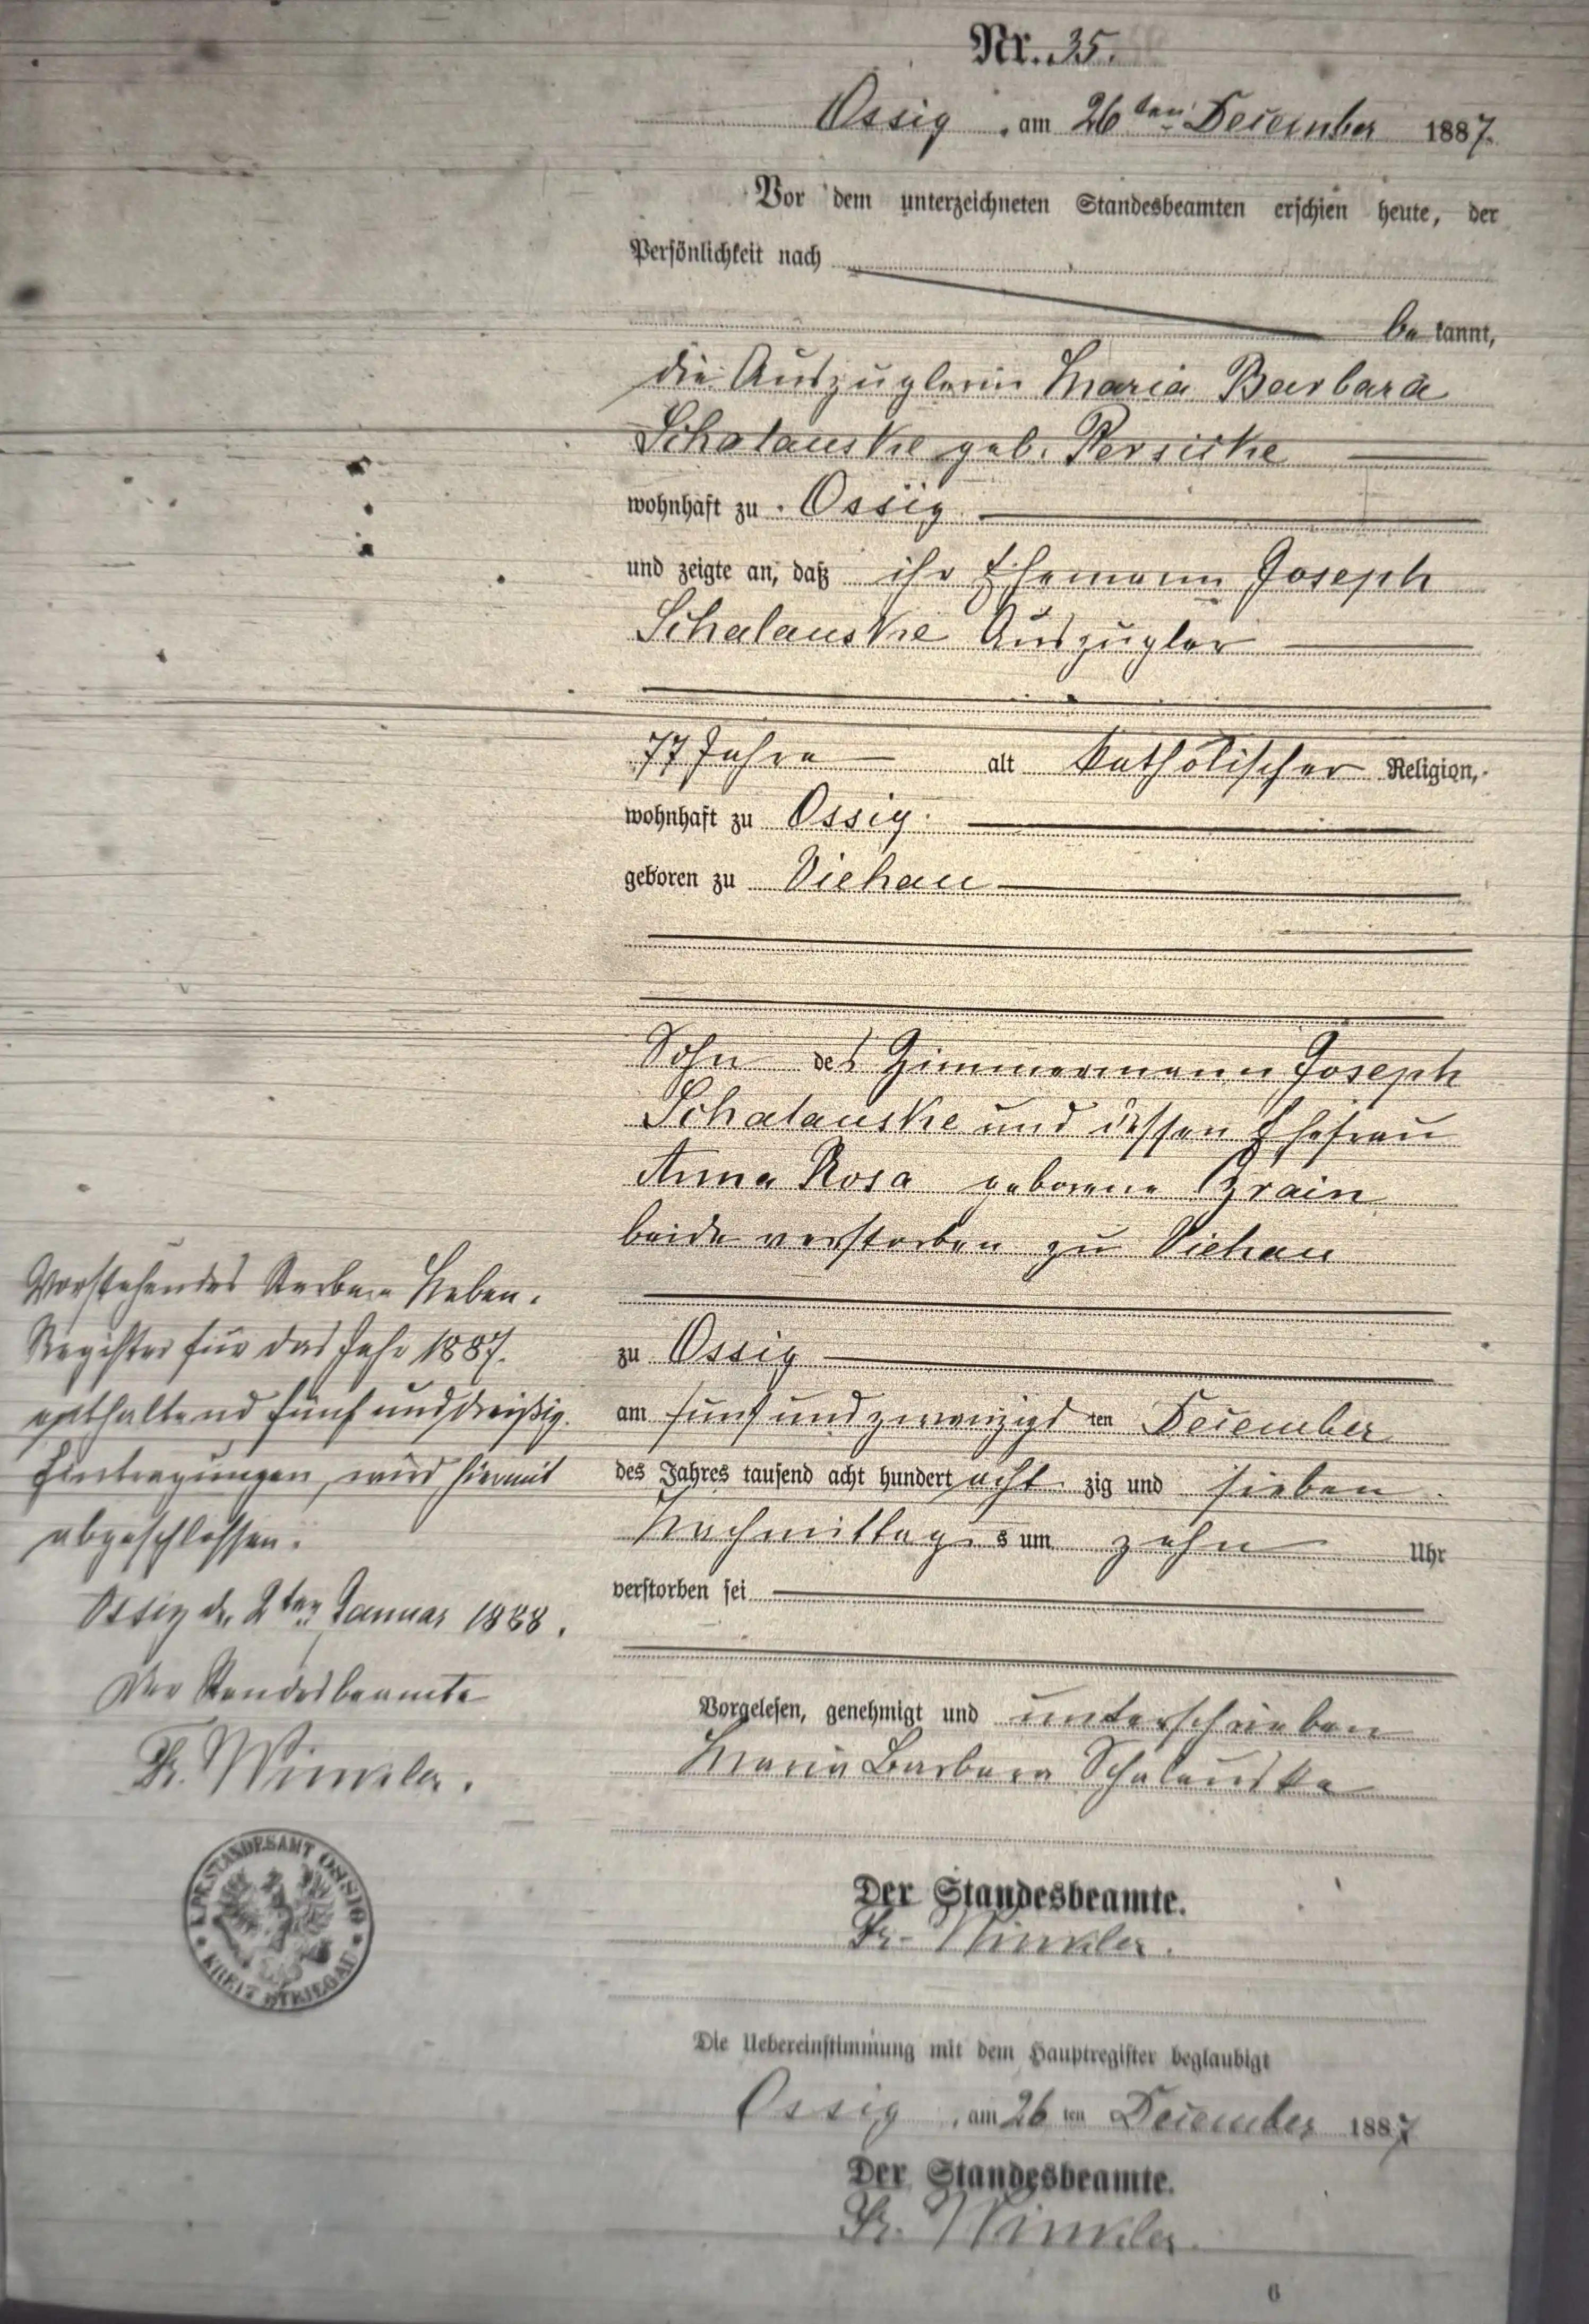 Nr. 35.
Ossig, am 26ten December 1887.
Vor dem unterzeichneten Standesbeamten erschien heute, der
Persönlichkeit nach
be kannt,
die Auszüglerin Maria Barbara
Schalauske geb. Persicke
wohnhaft zu Ossig
und zeigte an, daß ihr Ehemann Joseph
Schalauske Auszügler
77 Jahre alt katholischer Religion,
wohnhaft zu Ossig
geboren zu Viehau
Sohn des Zimmermann Joseph
Schalauske und dessen Ehefrau
Anna Rosa geborene
beide verstorben zu Viehau
zu Ossig
am fünf und zwanzigsten December
des Jahres tausend acht hundert acht zig und sieben
Nachmittags um zehn Uhr
verstorben sei
Vorgelesen, genehmigt und unterschrieben
Maria Barbara Schalauske
Der Standesbeamte.
Fr. Winkler.
Die Uebereinstimmung mit dem Hauptregister beglaubigt
Ossig, am 26ten December 1887
Der Standesbeamte.
Fr. Winkler.
6
Vorstehendes Sterbe Neben-
Register für das Jahr 1887.
enthaltend fünf und dreißig
Eintragungen, wird hiermit
abgeschlossen.
Ossig d. 2ten Januar 1888.
Der Standesbeamte
Fr. Winkler.
STANDESAMT OSSIG
KREIS STRIEGAU